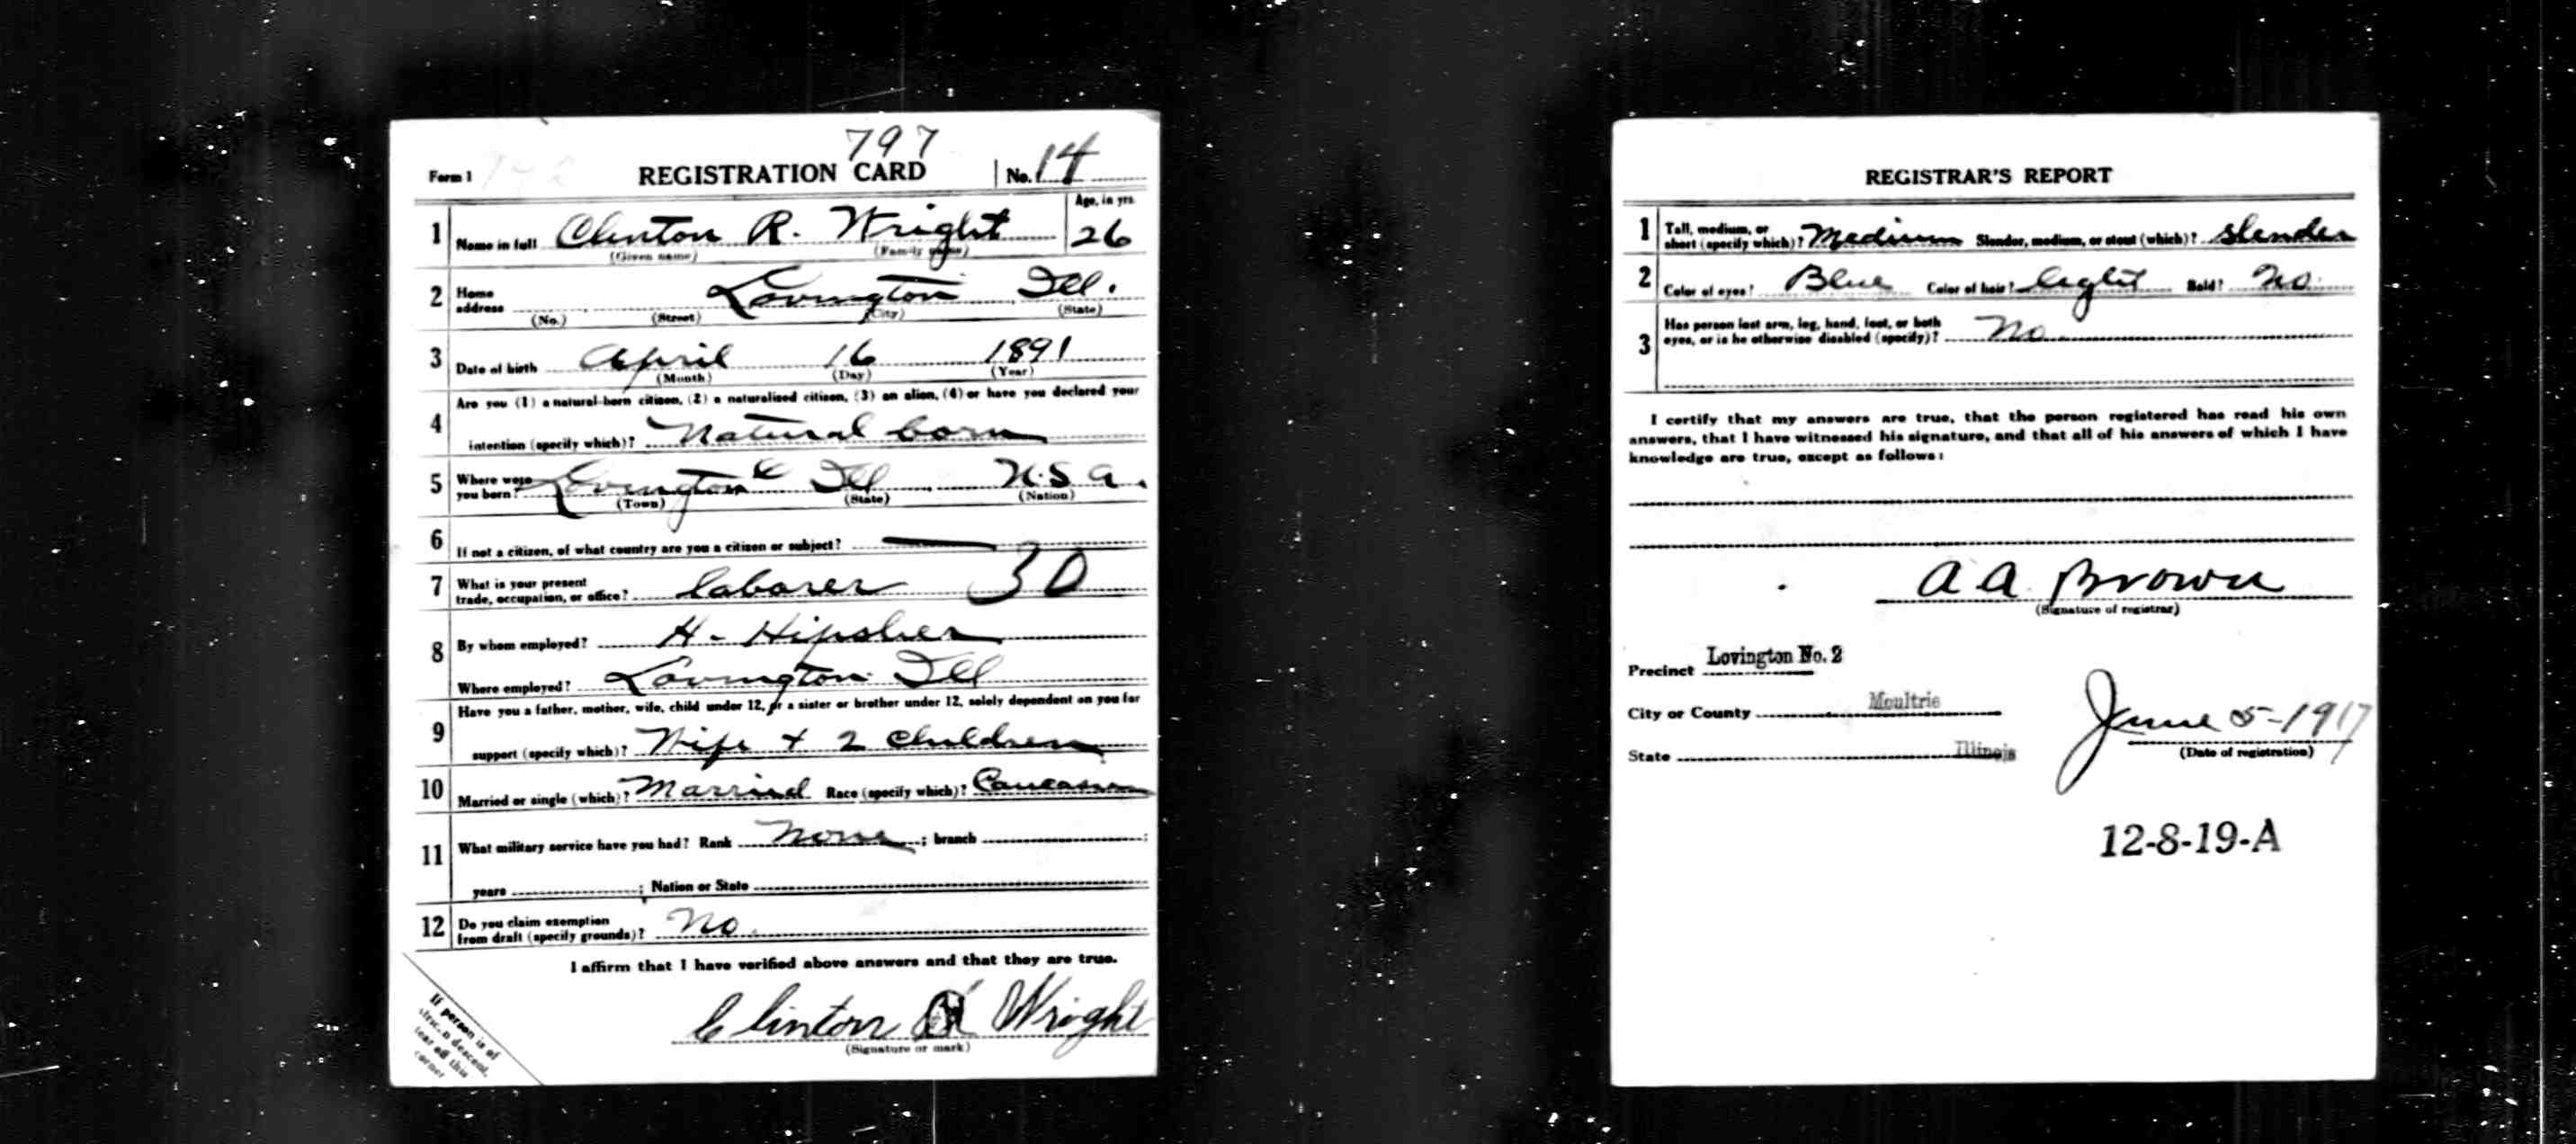 797
Form 1 REGISTRATION CARD No. 14
1 Name in full Clinton R. Wright Age, in yrs. 26
(Given name) (Family name)
2 Home address Lovington Ill.
(No.) (Street) (City) (State)
3 Date of birth April 16 1891
(Month) (Day) (Year)
Are you (1) a natural-born citizen, (2) a naturalized citizen, (3) an alien, (4) or have you declared your
4 intention (specify which)? Natural born
5 Where were you born? Lovington Ill U.S.A.
(Town) (State) (Nation)
6 If not a citizen, of what country are you a citizen or subject?
7 What is your present trade, occupation, or office? laborer 30
8 By whom employed? H. Hipsher
Where employed? Lovington Ill
Have you a father, mother, wife, child under 12, or a sister or brother under 12, solely dependent on you for
9 support (specify which)? Wife + 2 children
10 Married or single (which)? Married Race (specify which)? Caucasian
11 What military service have you had? Rank None ; branch ;
years ; Nation or State
12 Do you claim exemption from draft (specify grounds)? No.
I affirm that I have verified above answers and that they are true.
Clinton Wright
(Signature or mark)
If person is of
descent,
tear off this
corner
REGISTRAR'S REPORT
1 Tall, medium, or short (specify which)? Medium Slender, medium, or stout (which)? Slender
2 Color of eyes? Blue Color of hair? light Bald? No.
Has person lost arm, leg, hand, foot, or both
3 eyes, or is he otherwise disabled (specify)? No
I certify that my answers are true, that the person registered has read his own
answers, that I have witnessed his signature, and that all of his answers of which I have
knowledge are true, except as follows:
A A Brown
(Signature of registrar)
Precinct Lovington No. 2
City or County Moultrie
State Illinois
June 5-1917
(Date of registration)
12-8-19-A